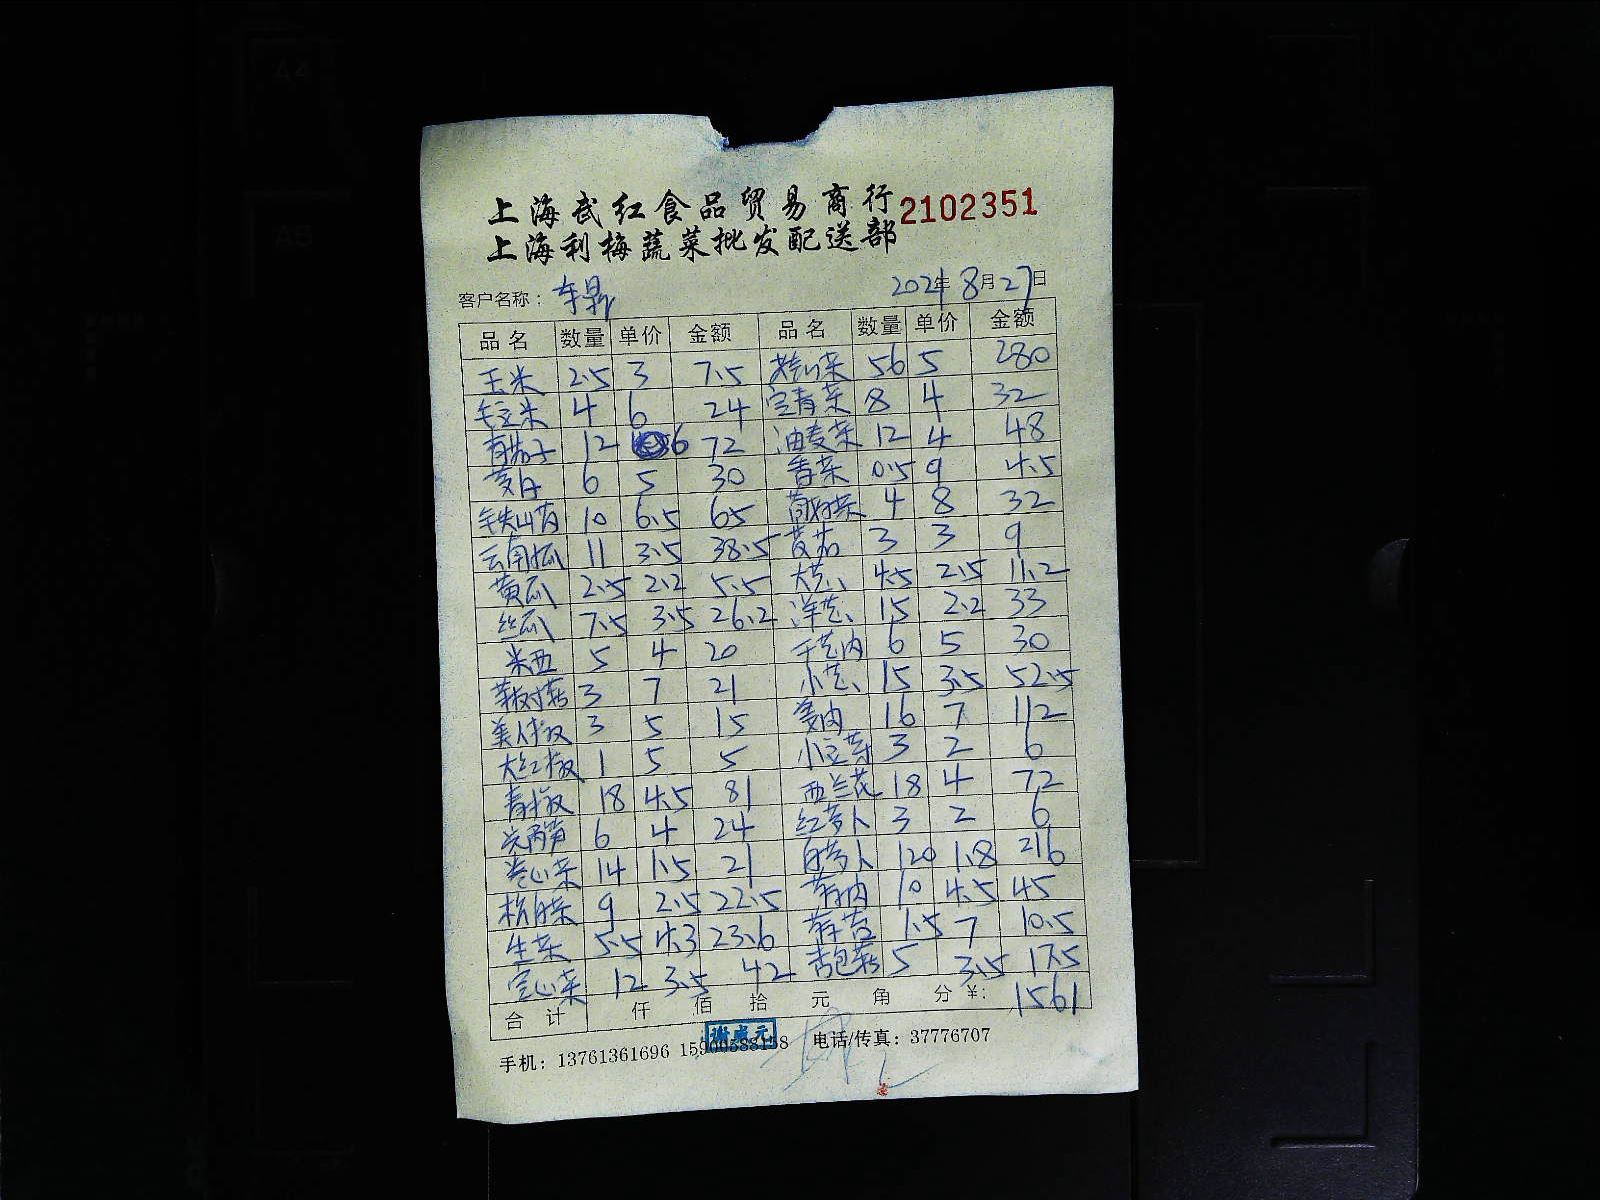 上海武红食品贸易商行 2102351
上海利梅蔬菜批发配送部
客户名称： 2021年8月27日
品名 数量 单价 金额 品名 数量 单价 金额
玉米 2.5 3 7.5 56 5 280
毛豆米 4 6 24 空青菜 8 4 32
青茄子 12 6 72 油麦菜 12 4 48
茭白 6 5 30 香菜 0.5 9 4.5
铁山药 10 6.5 65 4 8 32
云南瓜 11 3.5 38.5 3 3 9
黄瓜 2.5 2.2 5.5 大芸 4.5 2.5 11.2
丝瓜 7.5 3.5 26.2 洋芸 15 2.2 33
米西 5 4 20 干芸肉 6 5 30
3 7 21 小芸 15 3.5 52.5
美人椒 3 5 15 姜肉 16 7 112
大红椒 1 5 5 小豆芽 3 2 6
青椒 18 4.5 81 西兰花 18 4 72
6 4 24 红萝卜 3 2 6
卷心菜 14 1.5 21 白萝卜 120 1.8 216
杭白菜 9 2.5 22.5 10 4.5 45
生菜 5.5 4.3 23.6 1.5 7 10.5
空心菜 12 3.5 42 杏包菇 5 3.5 17.5
合计 仟 佰 拾 元 角 分 ¥： 1561
谢成元
手机：13761361696 15900588158 电话/传真：37776707